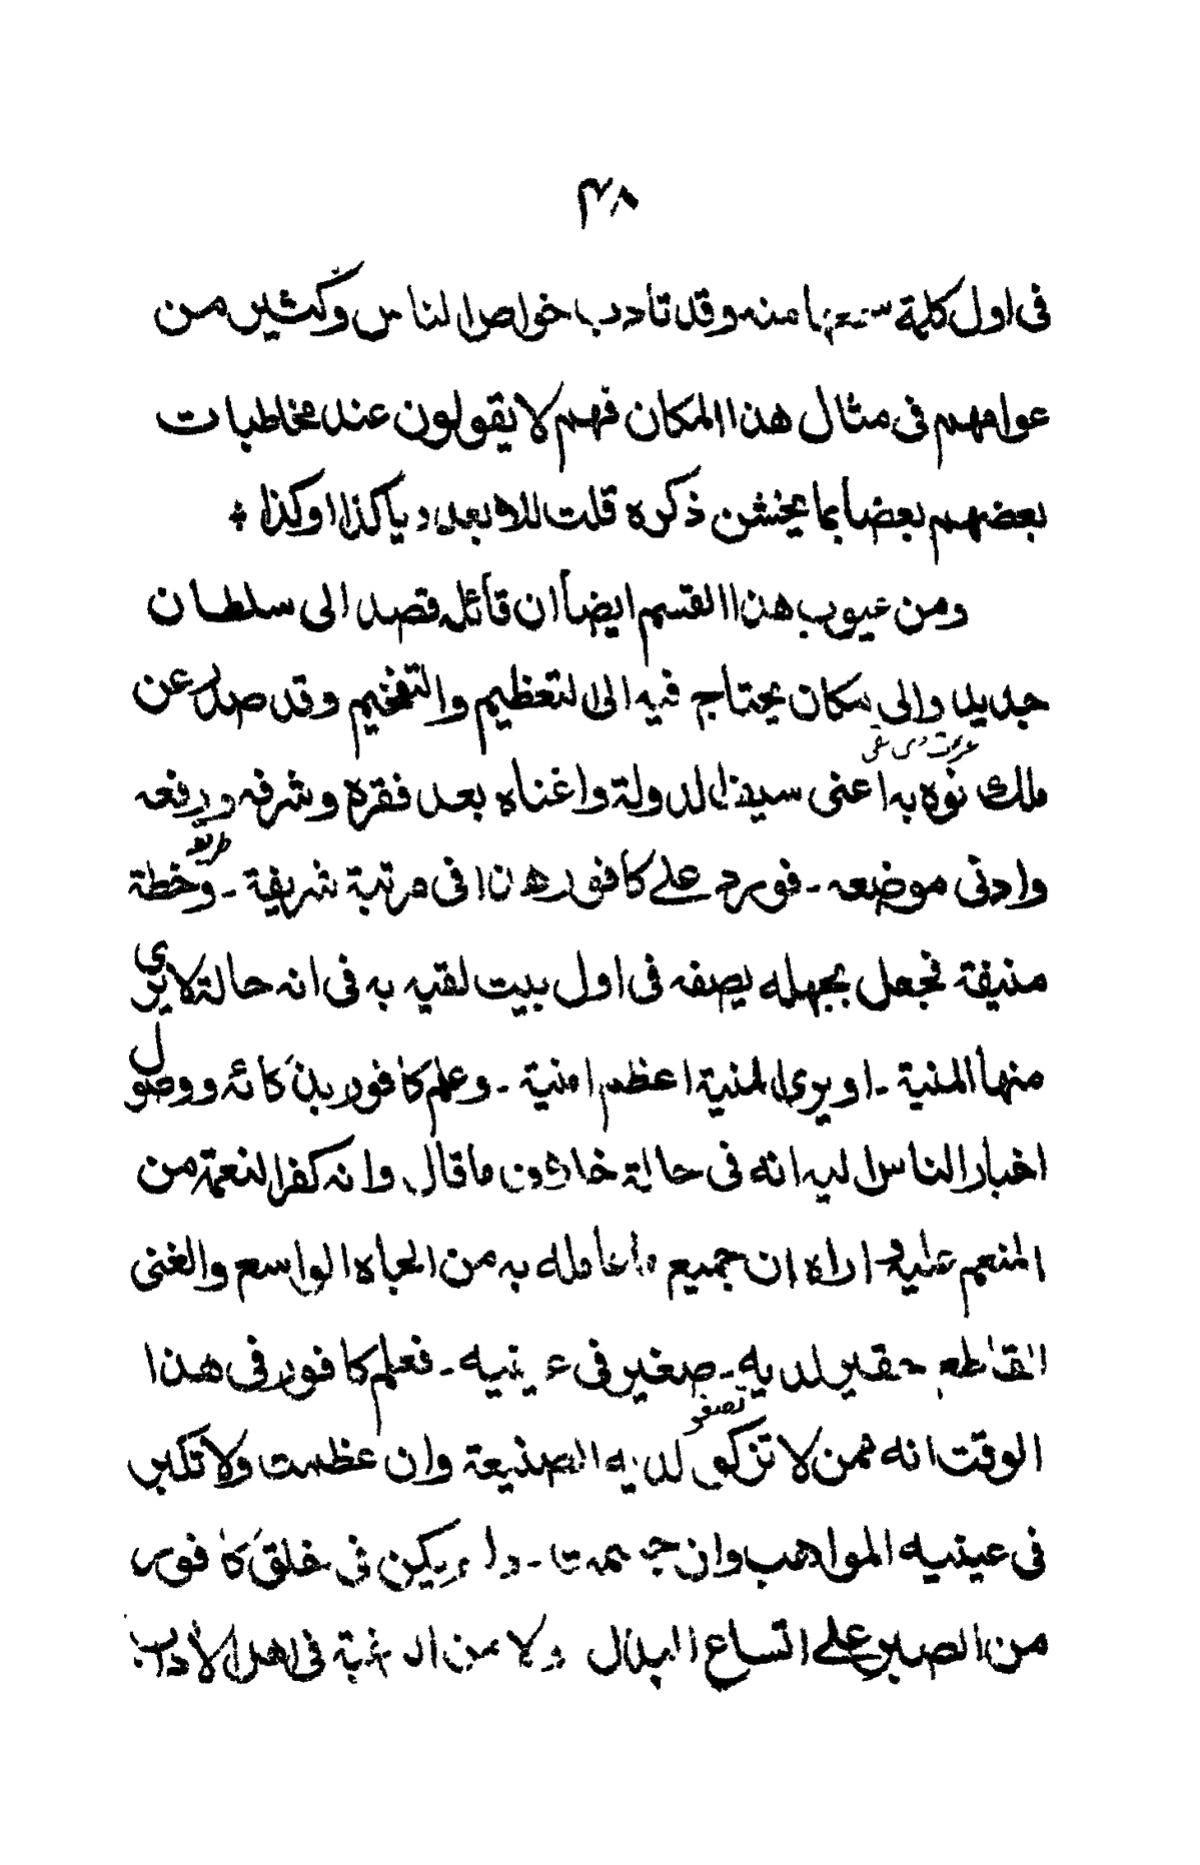 ٣٨
فى اول كلمة سمعها منه وقد تأدب خواص الناس وكثير من
عوامهم فى مثال هذا المكان فهم لا يقولون عند مخاطبات
بعضهم بعضاً بما يخشن ذكره قلت للابعد ويا كذا اوكذا ؞
ومن عيوب هذا القسم ايضاً ان قائله قصد الى سلطان
جديد والى مكان يحتاج فيه الى التعظيم والتفخيم وقد صدر عن
ملك نوه به اعنى سيف الدولة واغناه بعد فقره وشرفه ورفعه
وادنى موضعه ـ فورد على كافور هذا فى مرتبة شريفة ـ وخطة
منيفة فجعل بجهله يصفه فى اول بيت لقيه به فى انه حالة لا يرى
منها المنية ـ او يرى المنية اعظم امنية ـ وعلم كافور بذكائه ووصول
اخبار الناس اليه انه فى حالة خلاف ما قال وانه كفر النعمة من
المنعم عليه واراه ان جميع ما عامله به من الجاه الواسع والغنى
القاطع حقير لديه ـ صغير فى عينيه ـ فعلم كافور فى هذا
الوقت انه ممن لا تزكو لديه الصنيعة وان عظمت ولا تكبر
تصغر
فى عينيه المواهب وان جسمت ـ ولم يكن فى خلق كافور
من الصبر على اتساع البذل ولا من الرغبة فى اهل الادب